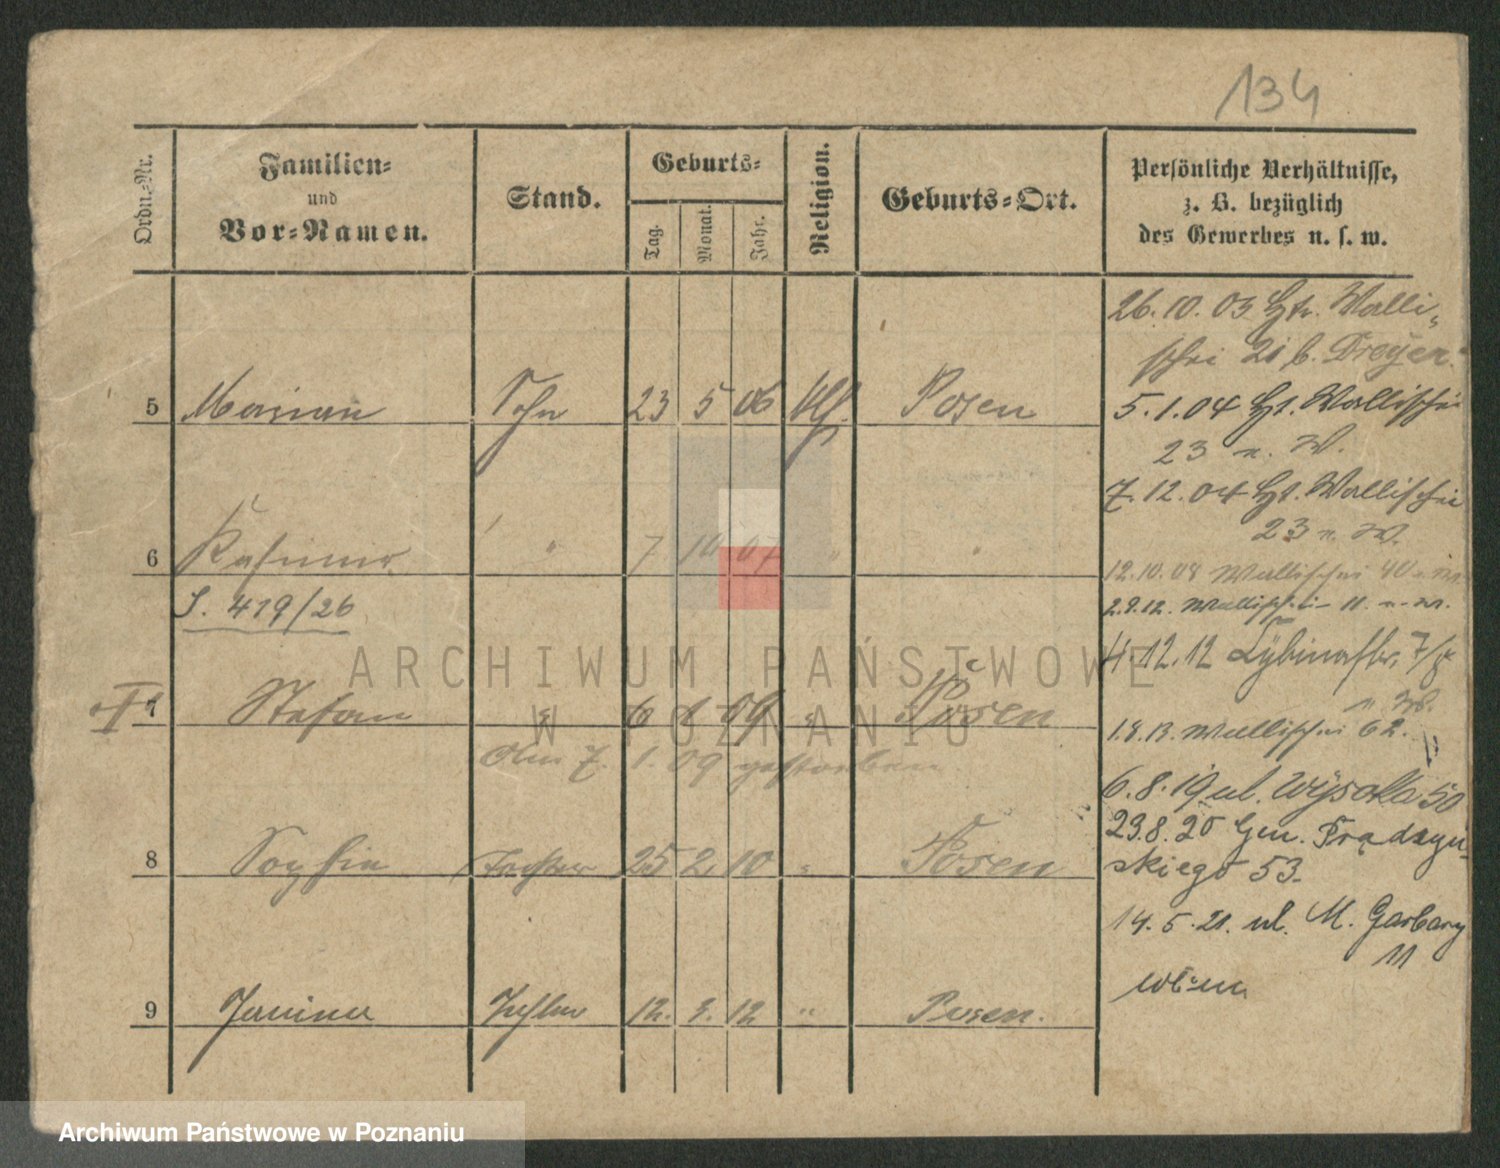 134
Ordn.-Nr.
Familien-
und
Vor-Namen.
Stand.
Geburts-
Tag. Monat. Jahr.
Religion.
Geburts-Ort.
Persönliche Verhältnisse,
z. B. bezüglich
des Gewerbes u. s. w.
5 Marian Sohn 23 5 06 Posen
6 Kasimir " 7 10 07 " "
S. 419/26
7 Stefan " 6 1 09 " Posen
Am 7. 1. 09 gestorben
8 Sophie Tochter 25 2. 10 " Posen
9 Janina Tochter 12. 2. 12 " Posen.
26. 10. 03 Walli-
schei 21 b. Dreyer
5. 1. 04 Wallischei
23 n. W.
7. 12. 04 Wallischei
23 n. W.
12. 10. 08 Wallischei 40
2.9.12. Wallischei 11
4. 12. 12
1.8.13. Wallischei 62.
6. 8. 19 ul. Wysoka 50
23.8.20 Gen. Prądzyń-
skiego 53.
14. 5. 21. ul. M. Garbary
11
ARCHIWUM PAŃSTWOWE
W POZNANIU
Archiwum Państwowe w Poznaniu